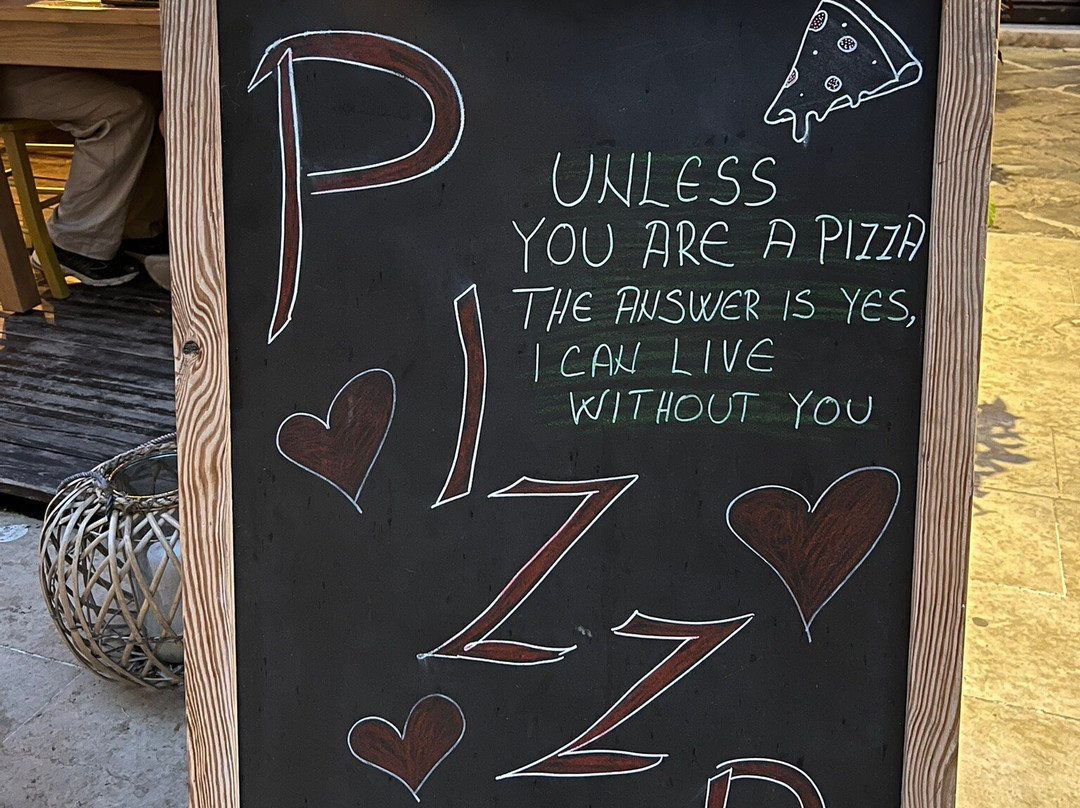 PIZZ
UNLESS
YOU ARE A PIZZA
THE ANSWER IS YES,
I CAN LIVE
WITHOUT YOU